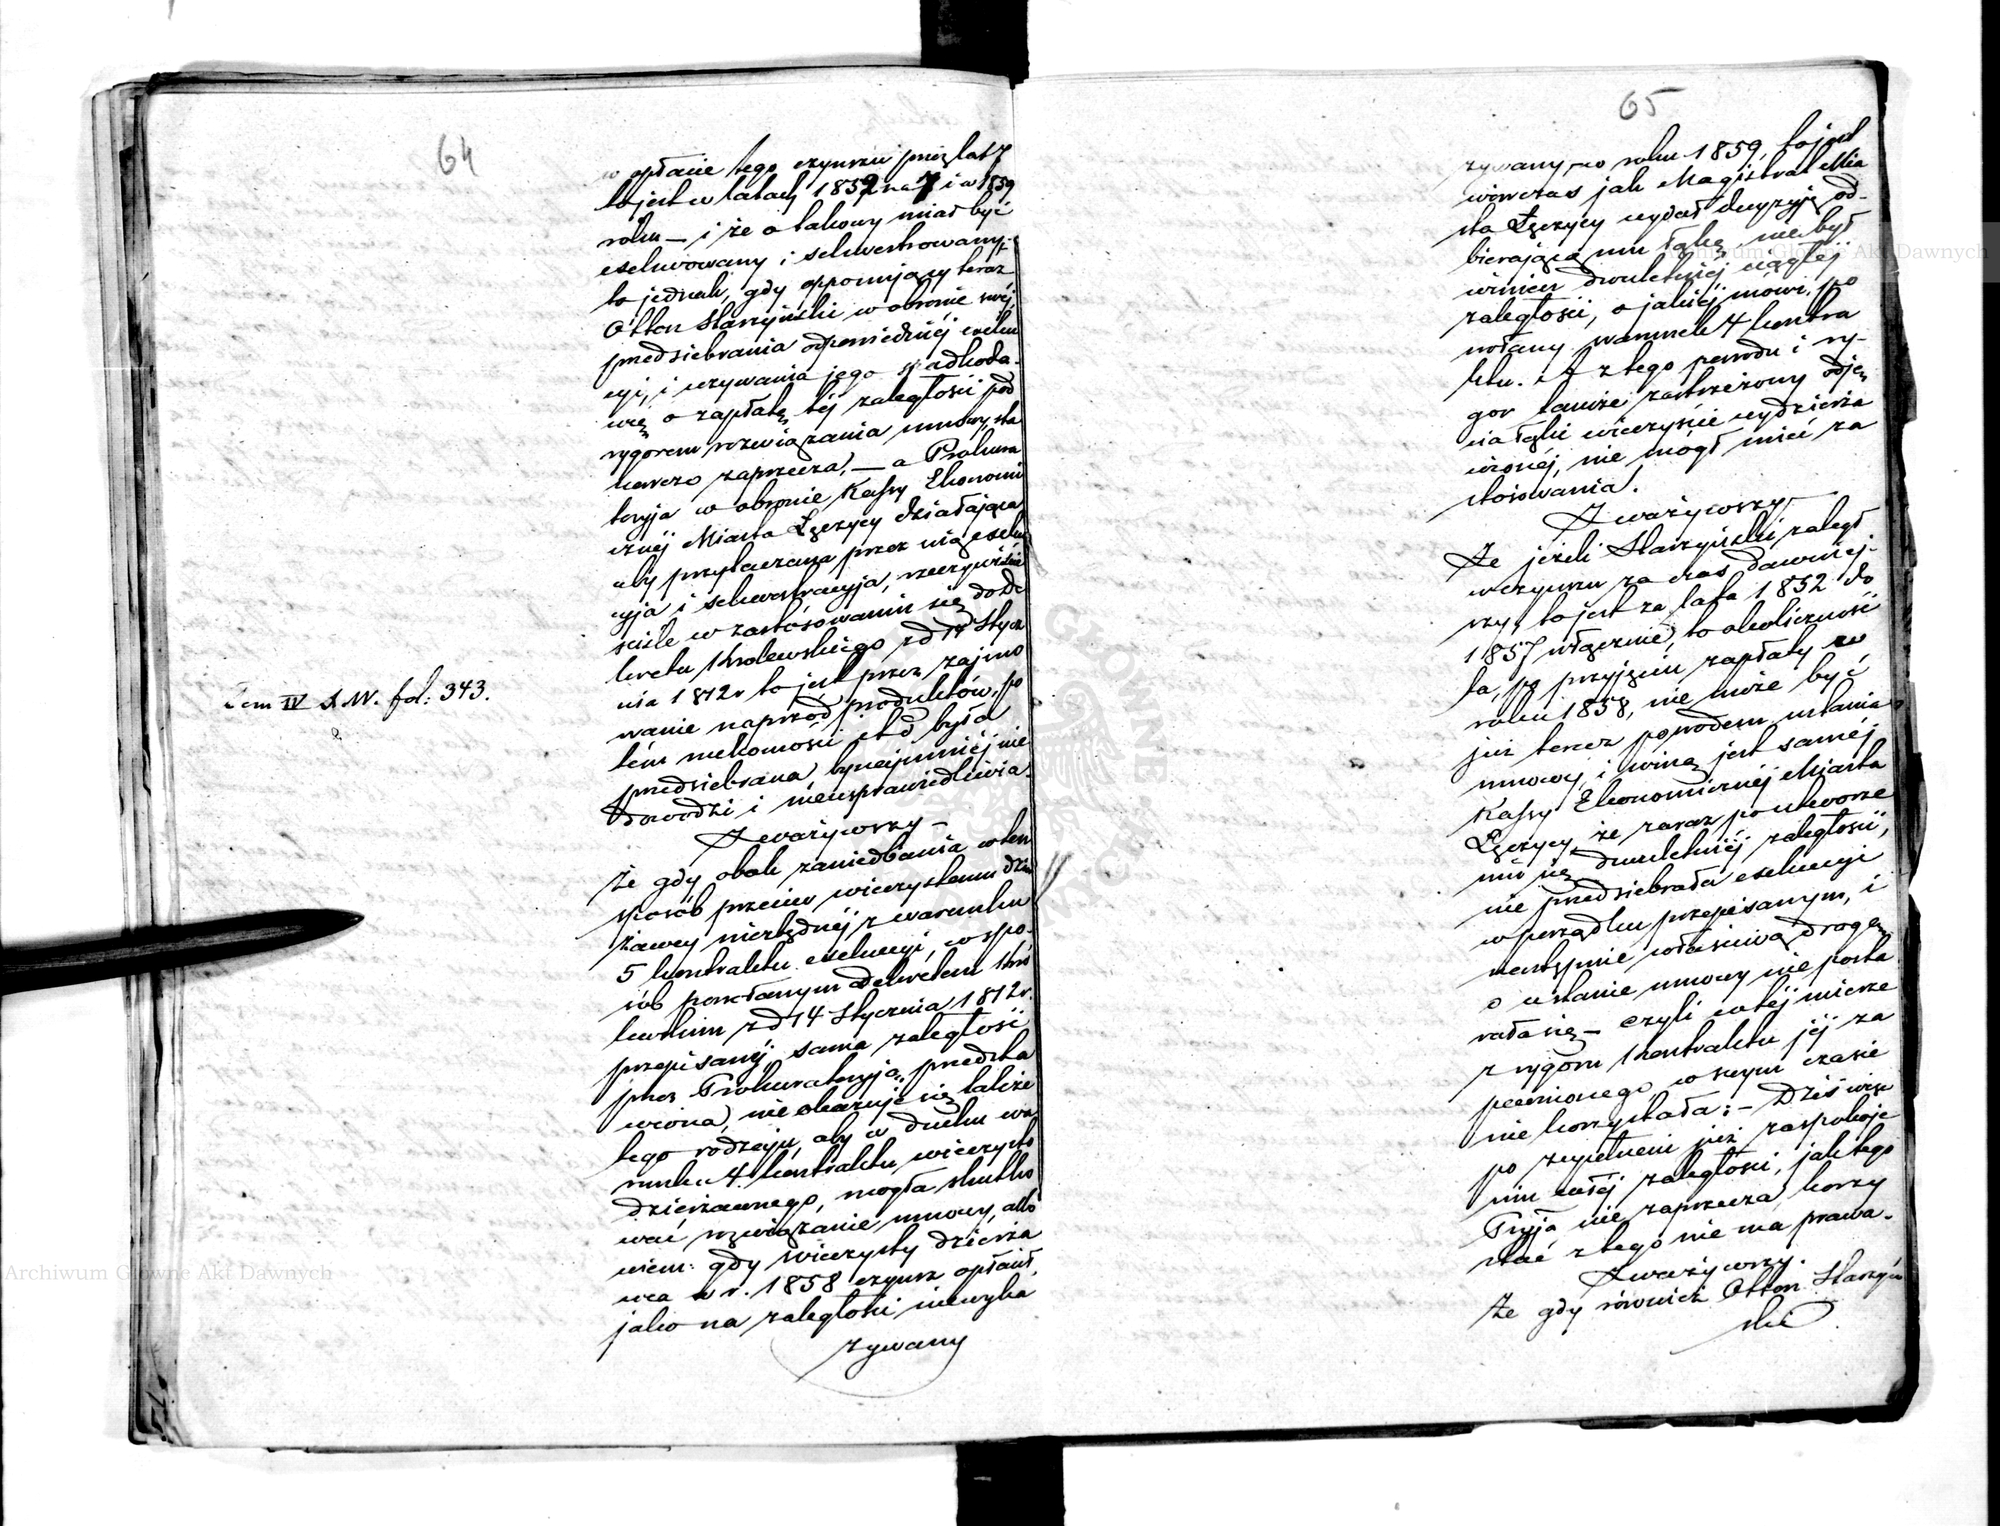 64
w opłanie tego czynszu przez lat 7
to jest w latach 1852 na 7 i w 1859
roku — i że o takowy miał być
exekwowany i sekwestrowany,
to jednak, gdy opponujący teraz
Otton Starzyński w obronie swéj
przedsiebrania odpowiedniéj exeku
cyi, i wzywania jego spadkoda-
wcę o zapłatę téj zaległości pod
rygorem rozwiązania umowy, sta
nowczo zaprzecza, — a Prokura
torya w obronie Kassy Ekonomi
cznéj Miasta Łęczycy działająca
aby przytaczana przez nią exeku
cyja i sekwestracyja, rzeczywiście
ściśle w zastósowaniu się do De
kretu Królewskiego z d 14 Stycz
nia 1812 r to jest przez zajmo
wanie naprzód produktów, po
tém ruchomości itd była
przedsiebrana, bynajmniéj nie
dowodzi i nieusprawiedliwia.
Tom IV D.W. fol: 343.
Zważywszy —
że gdy obok zaniedbania w ten
sposób przeciw wieczystemu dzier
żawcy niezbędnéj z warunku
5 kontraktu exekucyi, w spo-
sób powołanym Dekretem Kró
lewskim z d 14 Stycznia 1812 r.
przepisanéj, sama zaległość
przez Prokuratoryją przedsta
wiona, nie okazuje się także
tego rodzaju, aby w duchu wa
runku 4 kontraktu wieczysto
dzierżawnego, mogła skutko
wać rozwiązanie umowy, albo
wiem: gdy wieczysty dzierża
wca w r. 1858 czynsz opłacił,
jako na zaległości niewyka
zywany
65
zywany, — w roku 1859, to jest
wówczas jak Magistrat Mia
sta Łęczycy wydał decyzyję od-
bierającą mu łąkę, nie był
winien dwuletniéj ciągłéj
zaległości, o jakiéj mówi, po
wołany warunek 4 kontra
ktu. A z tego powodu i ry-
gor tamże zastrzeżony odję
cia łąki wieczyście wydzierża
wionéj, nie mógł mieć za
stosowania.
Zważywszy —
Że jeżeli Starzyński zaległ
w czynszu za czas dawniej-
szy, to jest za lata 1852 do
1857 włącznie, to okoliczność
ta, po przyjęciu zapłaty za
rok 1858, nie może być
już teraz powodem ustania
umowy, i winą jest saméj
Kassy Ekonomicznéj Miasta
Łęczycy, że zaraz po utworze
niu się dwuletniéj zaległości,
nie przedsiebrała exekucyi
w porządku przepisanym, i
następnie właściwą drogą
o ustanie umowy nie posta
rała się — czyli w téj mierze
z rygoru kontraktu jéj za
pewnionego w swym czasie
nie korzystała; — Dziś więc
po zupełném już zaspokoje
niu całéj zaległości, jak tego
Pryja nie zaprzecza, korzy
stać z tego nie ma prawa.
Zważywszy.
Że gdy również Otton Starzyń
ski